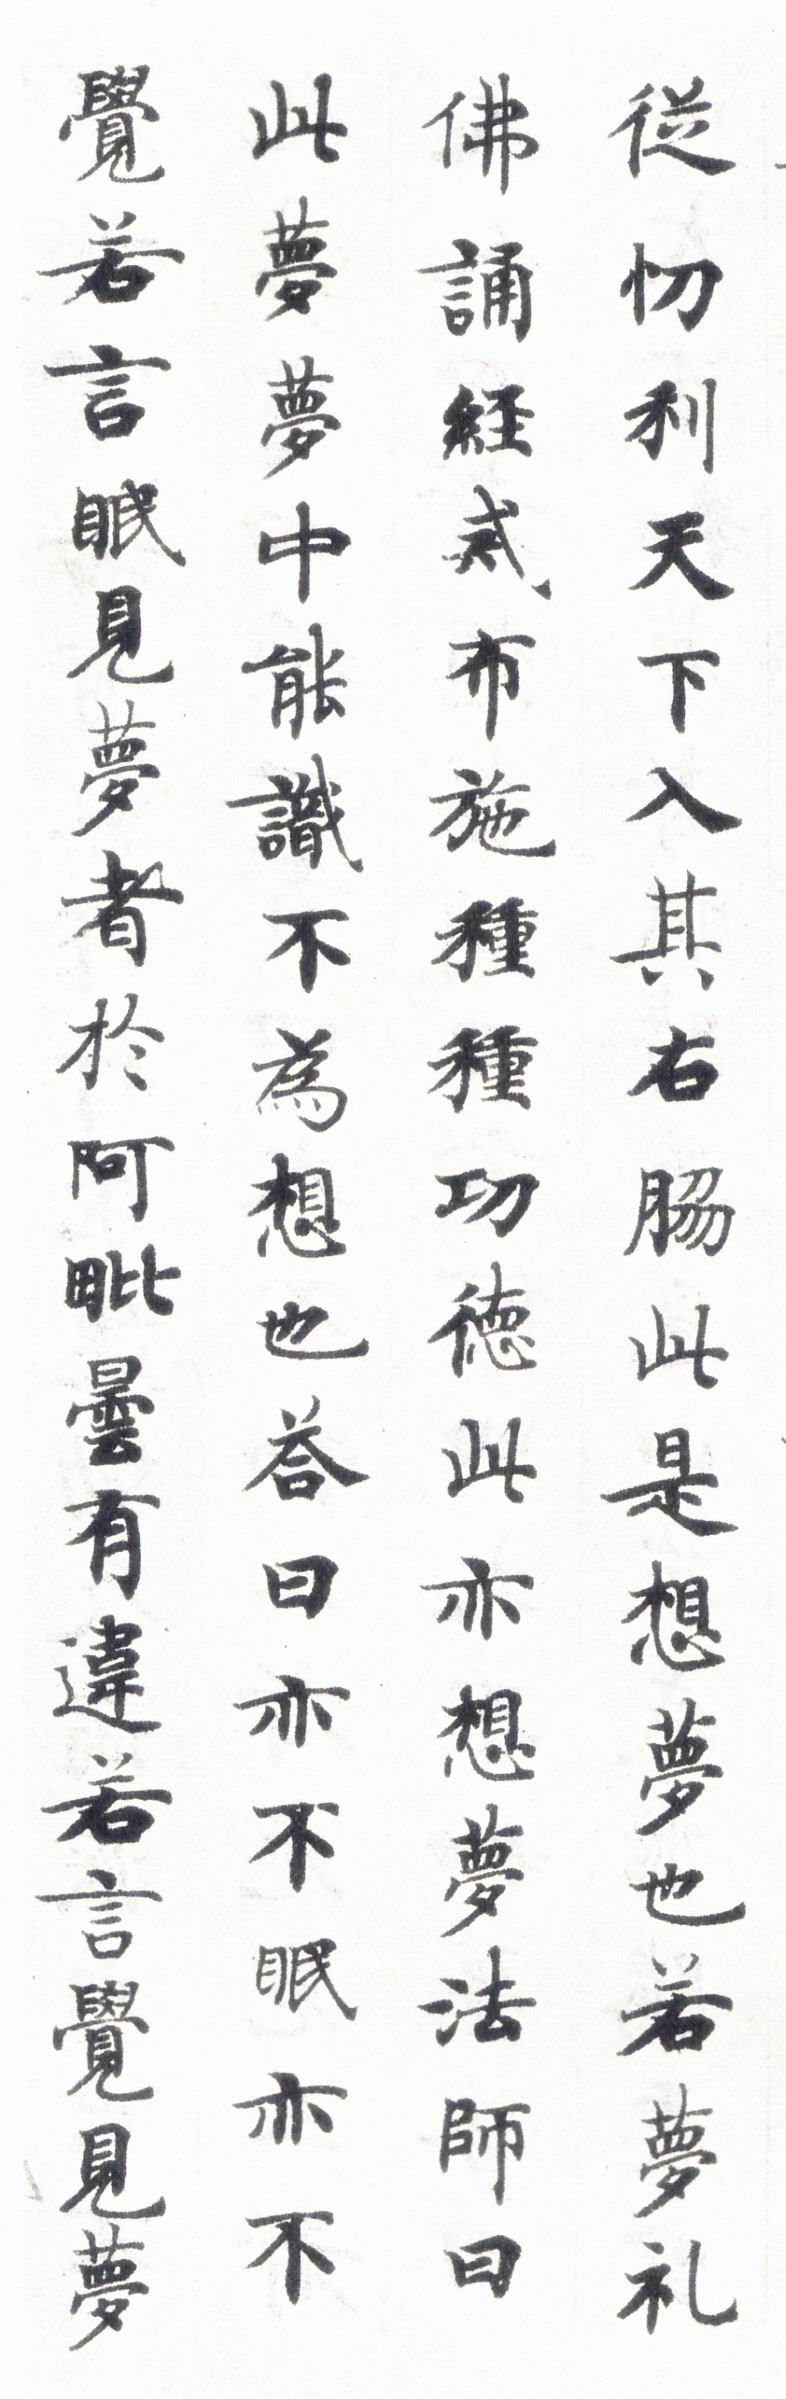 従忉利天下入其右脇此是想夢也若夢礼
佛誦経戒布施種種功徳此亦想夢法師曰
此夢夢中能識不為想也荅曰亦不眠亦不
覺若言眠見夢者於阿毗曇有違若言覺見夢